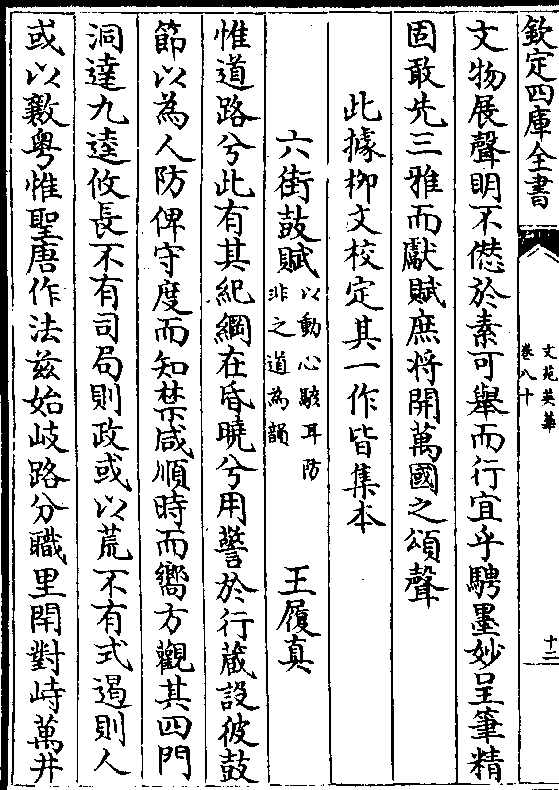 欽定四庫全書
文苑英華
卷八十
十二
文物展聲明不愆於素可舉而行宜乎騁墨妙呈筆精
固敢先三雅而獻賦庶将開萬國之頌聲
此據栁文校定其一作皆集本
六街鼓賦以動心駭耳防非之道為韻
王履真
惟道路兮此有其紀綱在昏曉兮用警於行蔵設彼鼓
節以為人防俾守度而知禁咸順時而嚮方觀其四門
洞達九逵攸長不有司局則政或以荒不有式遏則人
或以斁粤惟聖唐作法兹始岐路分職里閈對峙萬井